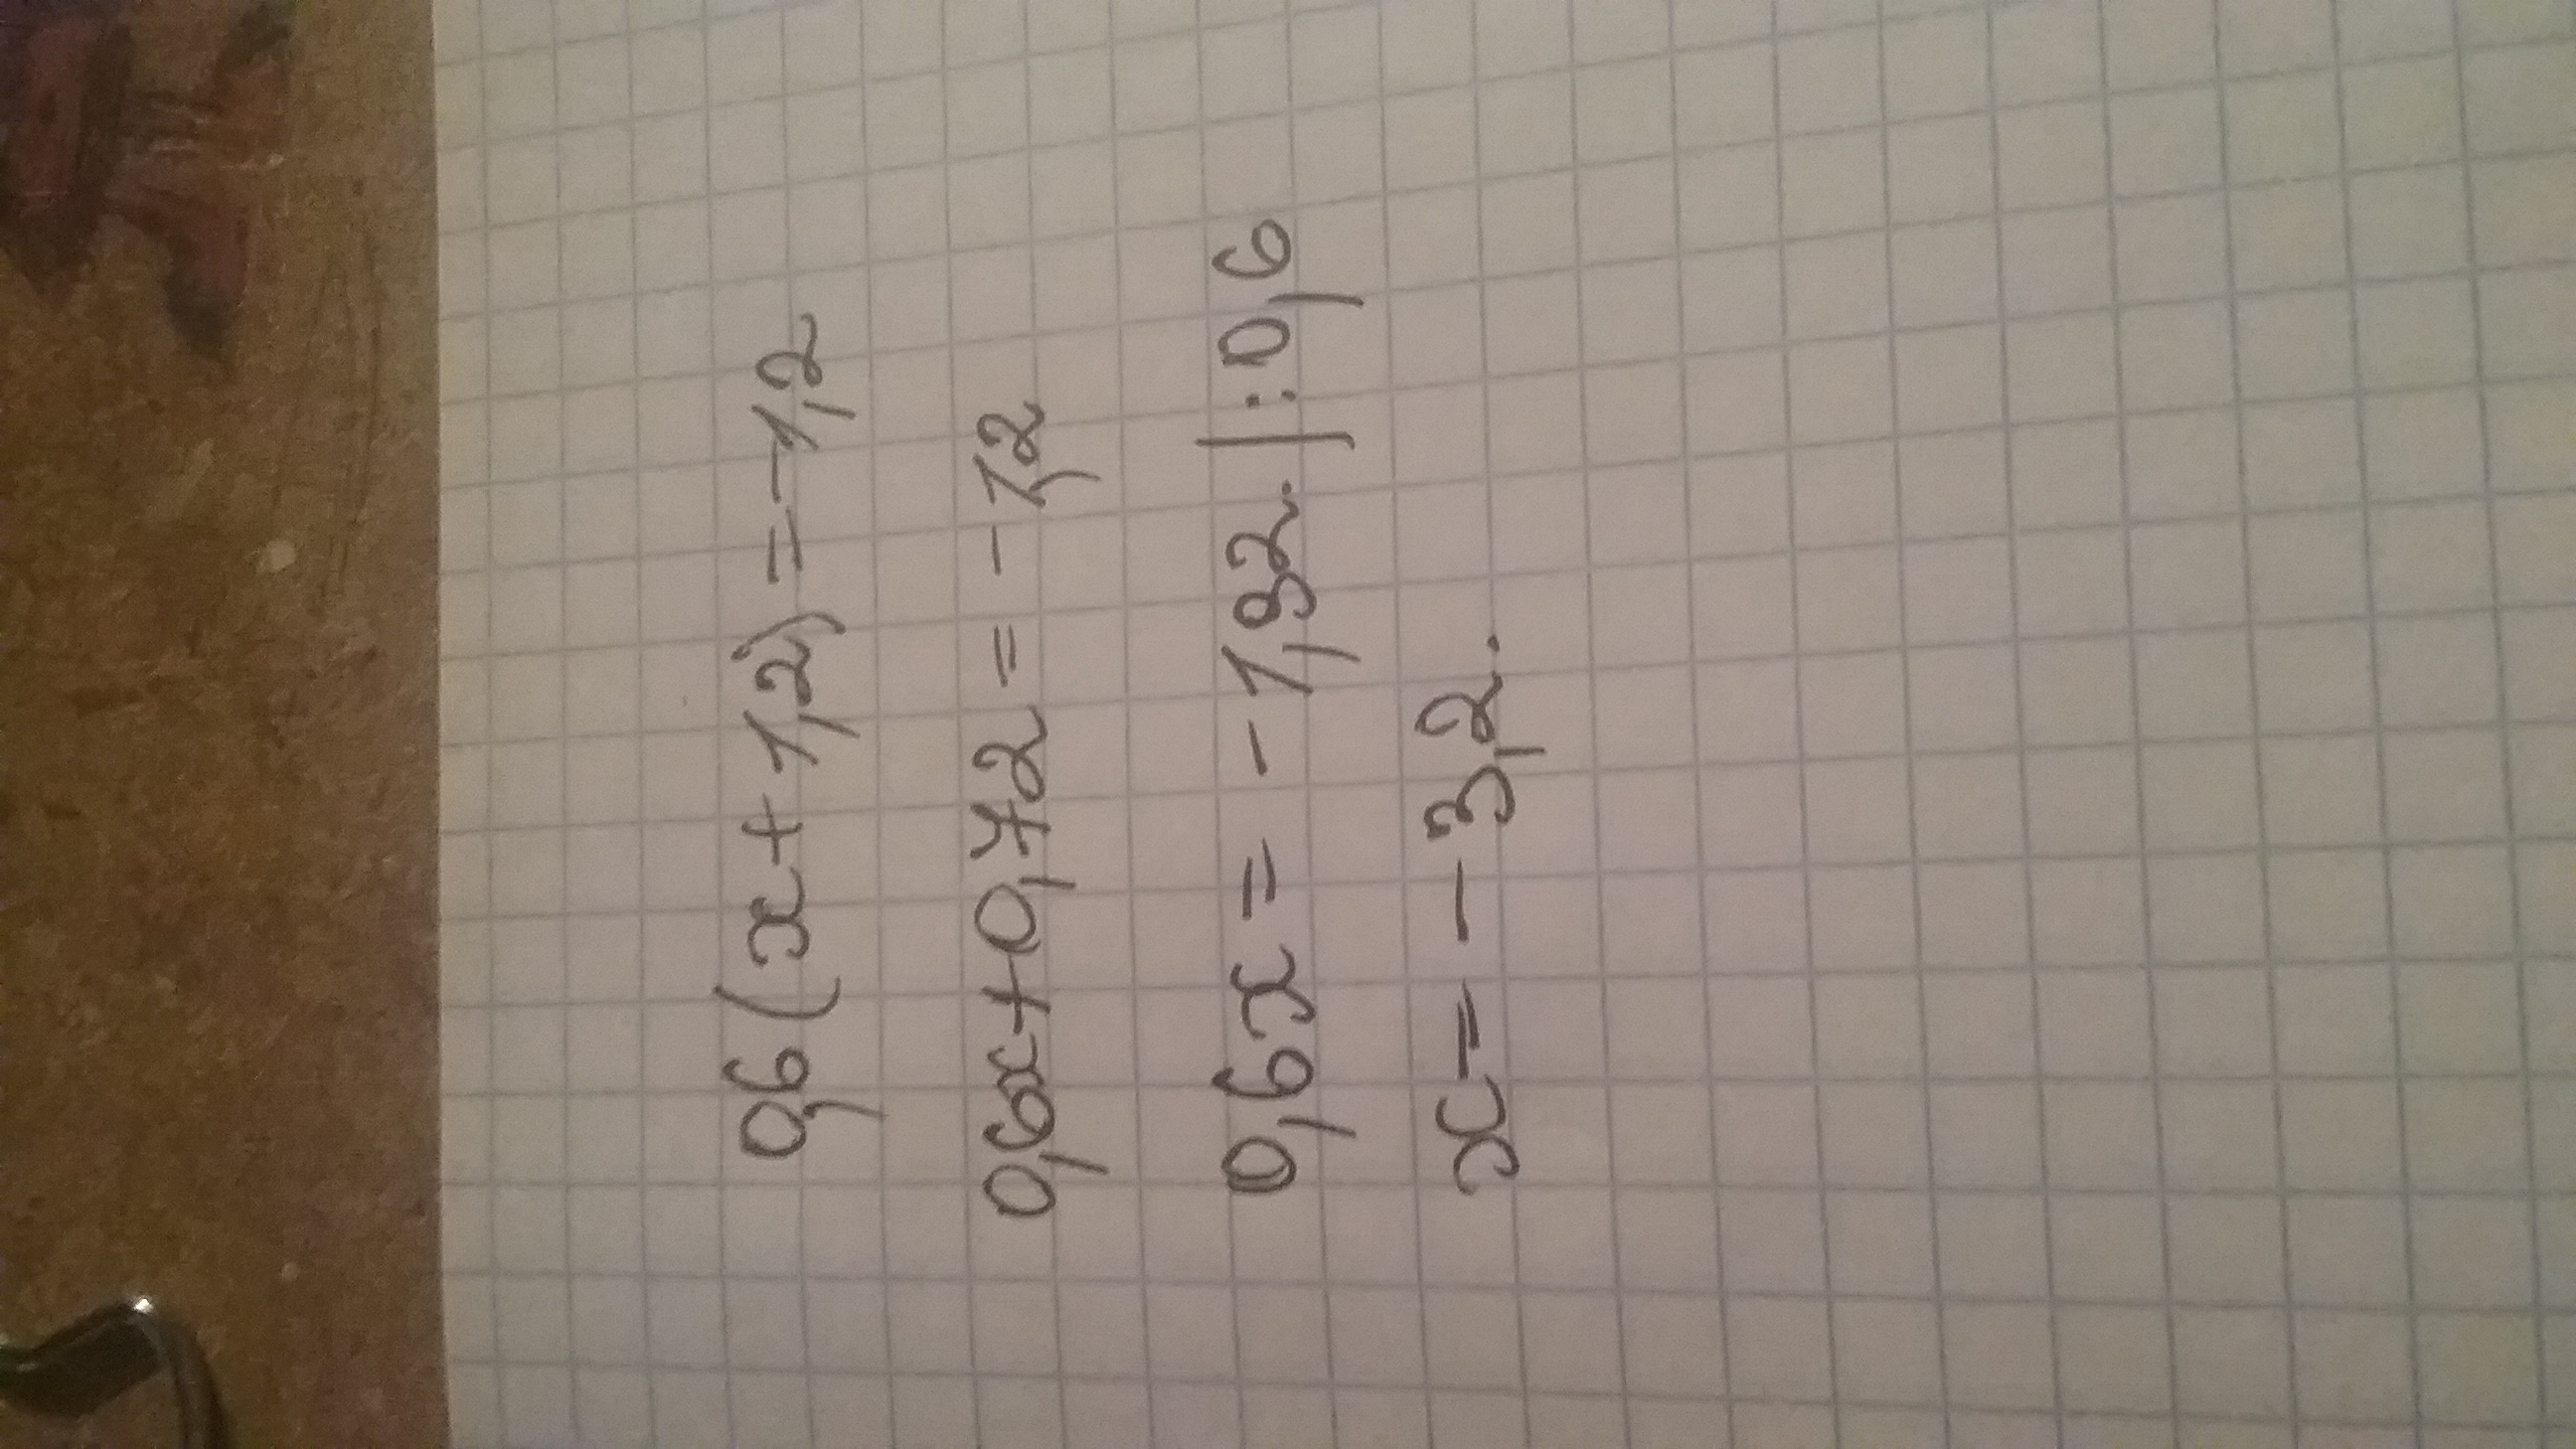 0,6(x+1,2)=-1,2
0,6x+0,72=-1,2
0,6x=-1,92. |:0,6
x=-3,2.